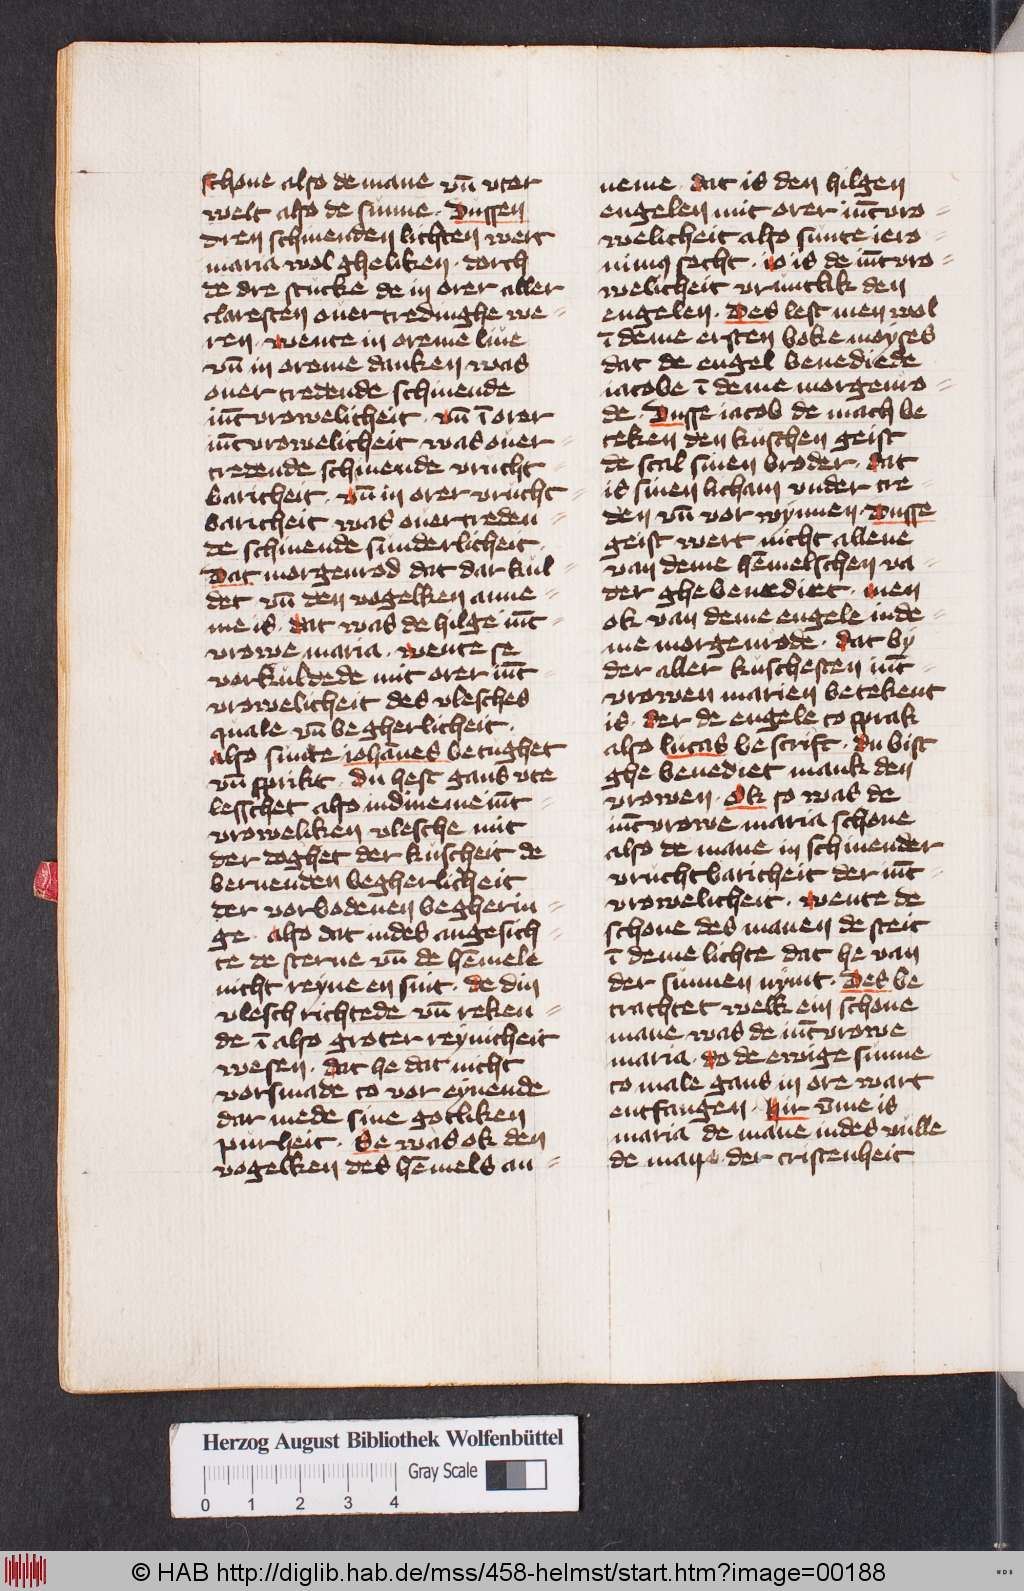 schone also de mane vn̄ vter
welt also de sunne · Dussen
dren schinenden lichten wert
maria wol gheliken · dorch
de dre stucke de in orer aller
claresten ouertredinghe we-
ren · wente in oreme liue
vn̄ in oreme danken was
ouertredende schinende
iūcvrowelicheit · vn̄ ī orer
iūcvrowelicheit was ouer-
tredende schinende vrucht-
baricheit · vn̄ in orer vrucht-
baricheit was ouertreden-
de schinende sunderlicheit
Dat morgenrod dat dar kul-
det vn̄ den vogelken anne-
me is · dat was de hilge iūc-
vrowe maria · wente se
vorkuldede mit orer iūc-
vrowelicheit des vlesches
quale vn̄ begherlicheit ·
also sunte iohānes betughet
vn̄ sprikt · Du hest gans vte
lesschet also indineme iūc-
vroweliken vlesche mit
der doghet der kuscheit de
bernenden begherlicheit
der vorbodenen begherin-
ge · also dat indes angesich-
te de sterne vn̄ de hēmele
nicht reyne en sint · de din
vlesch richtede vn̄ reken-
de ī also groter reynicheit
wesen · dat he dat nicht
vorsmade to vor eynende
dar mede sine gotliken
purheit · Se was ok den
vogelken des hēmels an-
neme · dat is den hilgen
engelen mit orer iūcvro-
welicheit also sunte iero-
nimus secht · io is de iūcvro-
welicheit vruntlik den
engelen · Des lest men wol
ī deme ersten boke moyses
dat de engel benediede
iacobe ī deme morgenro-
de · Dusse iacob de mach be
teken den kuschen geist
de scal sinen broder · dat
is sinen licham vnder tre-
den vn̄ vor wynnen · Dusse
geist wert nicht allene
van deme hēmelschen va-
der ghebenediet · men
ok van deme engele inde-
me morgenrode · dat by
der aller kuschesten iūc-
vrowen marien betekent
is · der de engele to sprak
also lucas bescrift · du bist
ghe benediet mank den
vrowen · Ok so was de
iūcvrowe maria schone
also de mane in schinender
vruchtbaricheit der iūc-
vrowelicheit · wente de
schone des manen de steit
ī deme lichte dat he van
der sunnen nymt · Des be
trachtet welk ein schone
mane was de iūcvrowe
maria · do de ewige sunne
to male gans in ore wart
entfangen · hir v̄me is
maria de mane indes vulle
de mane der cristenheit
Herzog August Bibliothek Wolfenbüttel
Gray Scale
0 1 2 3 4
© HAB http://diglib.hab.de/mss/458-helmst/start.htm?image=00188